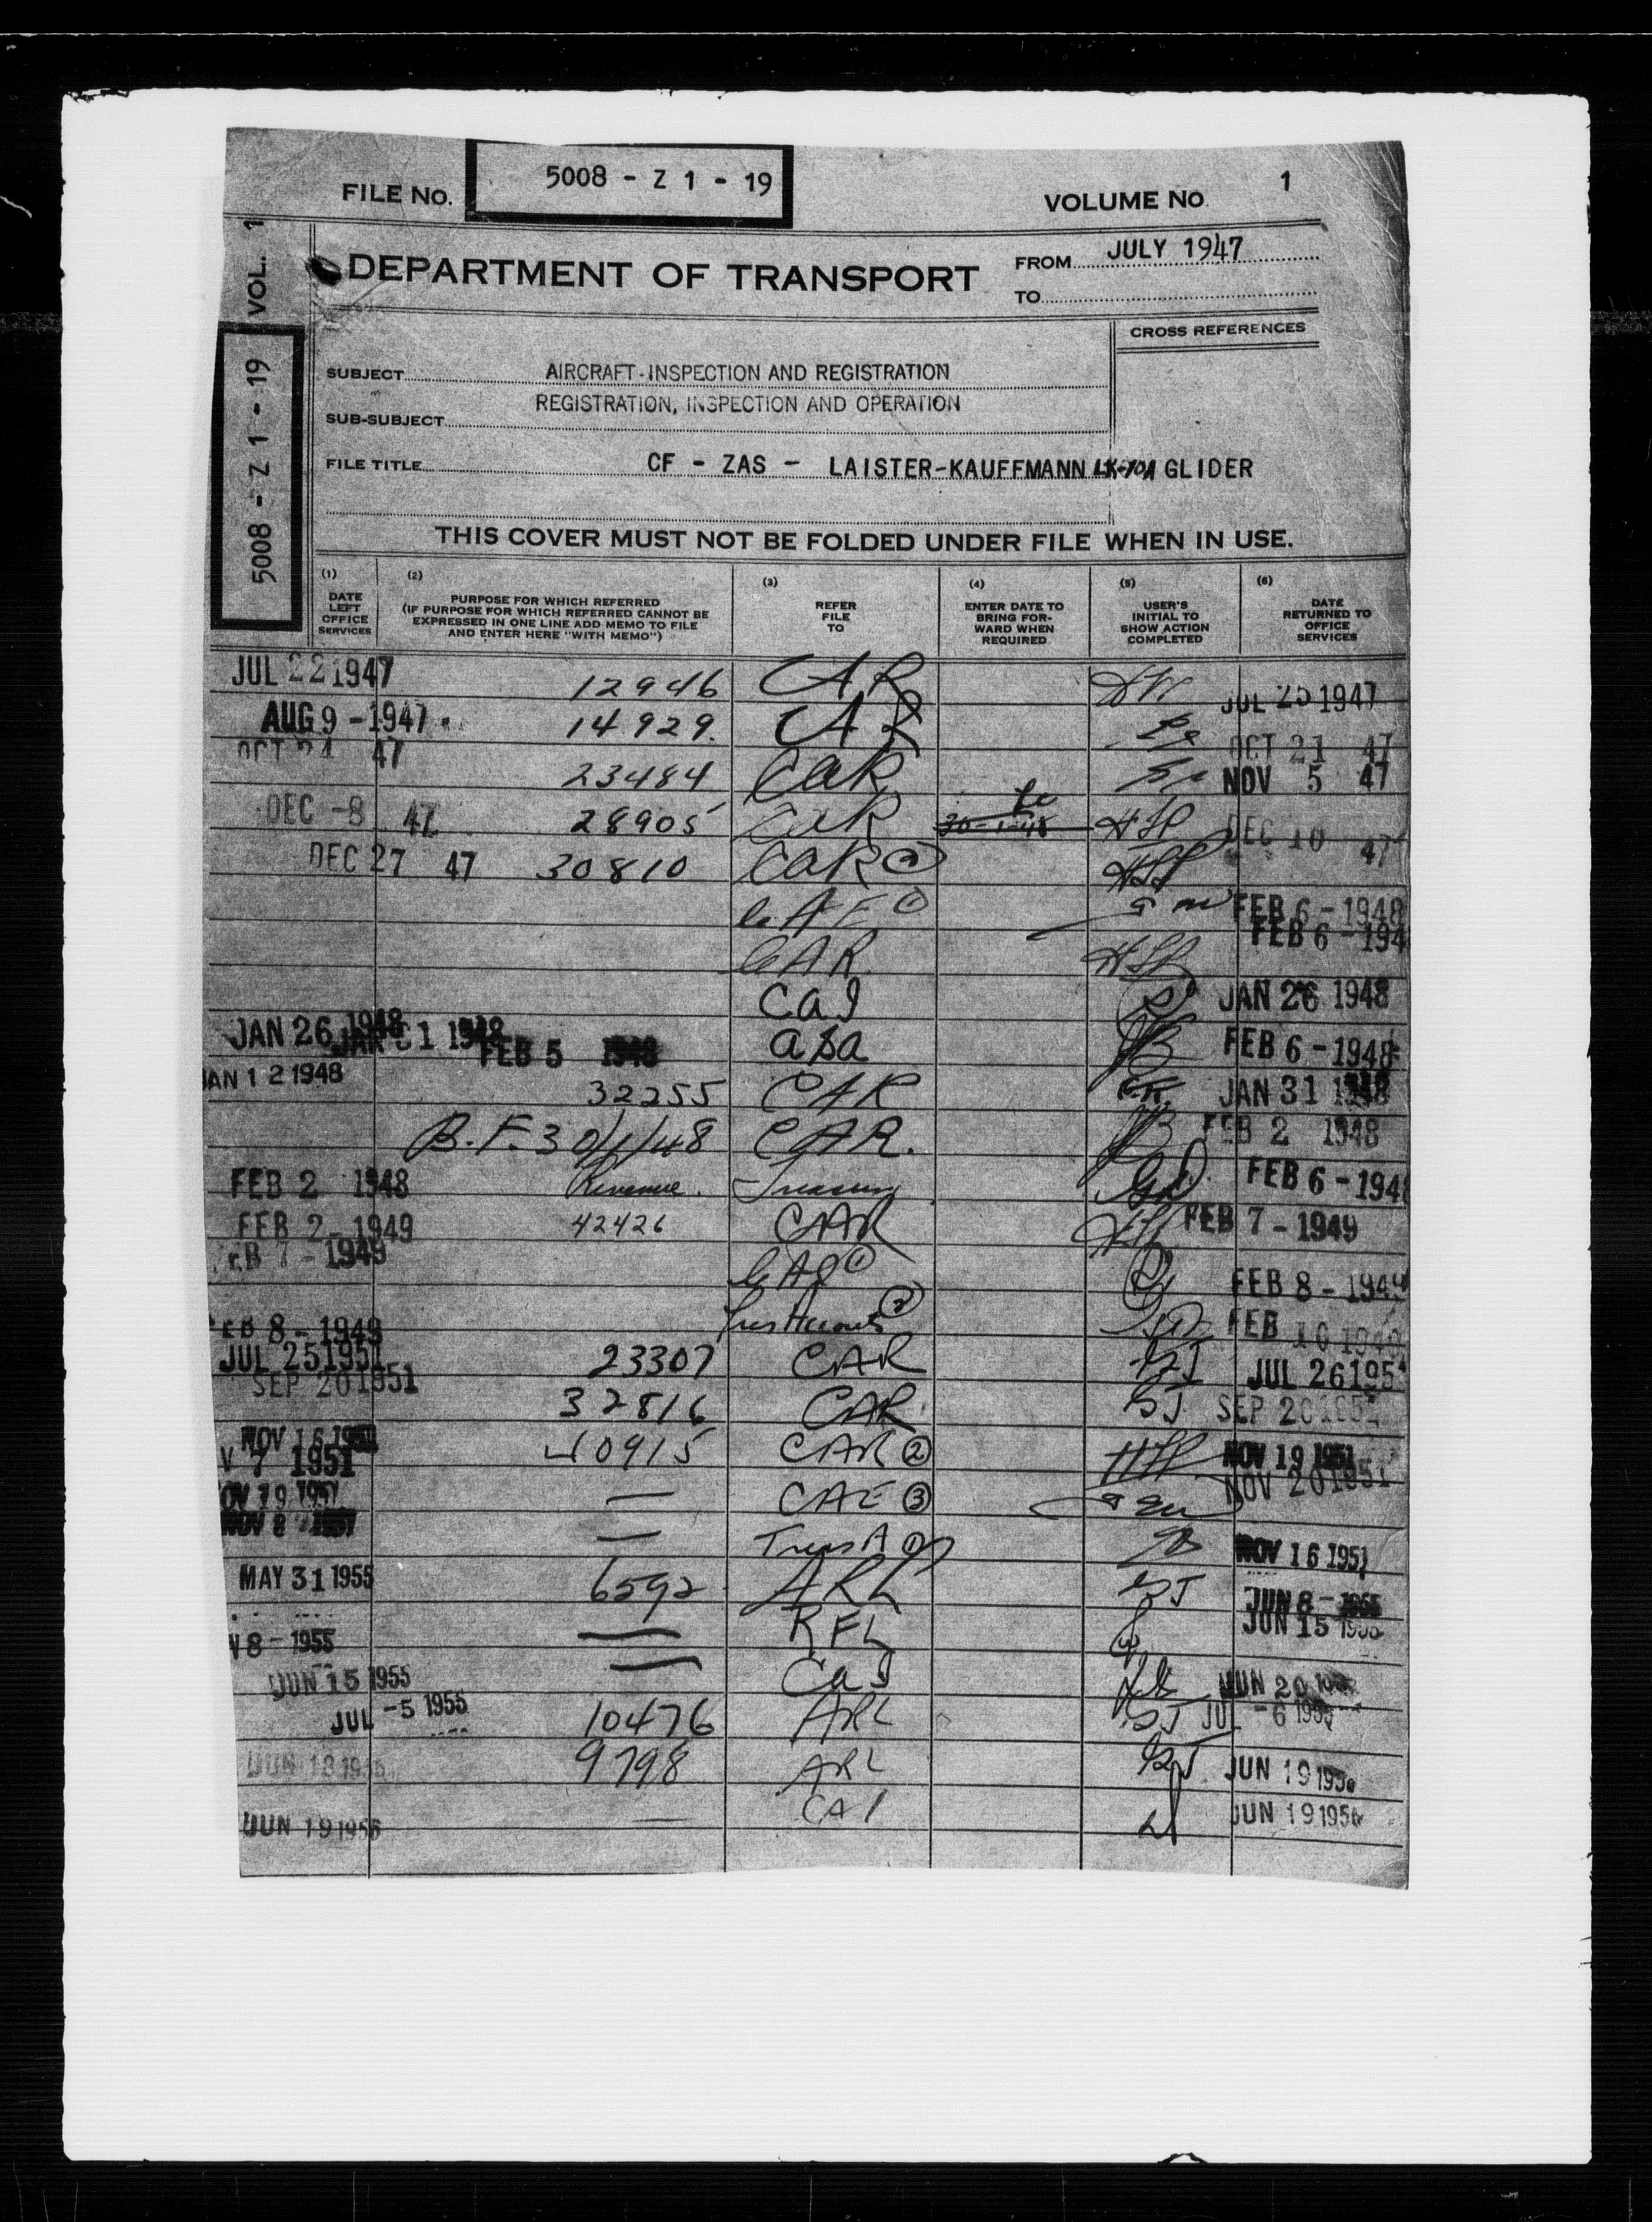 FILE No. 5008 - Z 1 - 19 VOLUME No 1
VOL. 1
5008 - Z 1 - 19
DEPARTMENT OF TRANSPORT
FROM JULY 1947
TO
CROSS REFERENCES
SUBJECT AIRCRAFT-INSPECTION AND REGISTRATION
SUB-SUBJECT REGISTRATION, INSPECTION AND OPERATION
FILE TITLE CF - ZAS - LAISTER-KAUFFMANN LK-10A GLIDER
THIS COVER MUST NOT BE FOLDED UNDER FILE WHEN IN USE.
(1) DATE LEFT OFFICE SERVICES
(2) PURPOSE FOR WHICH REFERRED (IF PURPOSE FOR WHICH REFERRED CANNOT BE EXPRESSED IN ONE LINE ADD MEMO TO FILE AND ENTER HERE "WITH MEMO")
(3) REFER FILE TO
(4) ENTER DATE TO BRING FORWARD WHEN REQUIRED
(5) USER'S INITIAL TO SHOW ACTION COMPLETED
(6) DATE RETURNED TO OFFICE SERVICES
JUL 22 1947 12946 CAR JUL 25 1947
AUG 9 - 1947 14929. CAR OCT 21 47
OCT 24 47 23484 CAR NOV 5 47
DEC -8 47 28905 CAR 30-1-48 HSP DEC 10 47
DEC 27 47 30810 CAR 2 HSP
CAE 1 FEB 6 - 1948
CAR HSP FEB 6 - 194
CAI JAN 26 1948
JAN 26 1948 JAN 31 1948 FEB 5 1948 ASA FEB 6 - 1948
JAN 12 1948 32255 CAR JAN 31 1948
B.F. 30/1/48 CAR. FEB 2 1948
FEB 2 1948 Revenue. Treasury FEB 6 - 194
FEB 2 - 1949 42426 CAR FEB 7 - 1949
FEB 7 - 1949 CAI 1 FEB 8 - 1949
FEB 8 - 1949 2 FEB 10 1949
JUL 25 1951 23307 CAR JUL 26 195
SEP 20 1951 32816 CAR SEP 20 195
NOV 16 1951 40915 CAR 2 NOV 19 1951
V 7 1951
OV 19 1951 — CAE 3 NOV 20 1951
NOV 8 1951 — Treas A 1 NOV 16 1951
MAY 31 1955 6592 ARL JUN 8 - 1955
N 8 - 1955 — RFL JUN 15 1955
JUN 15 1955 — CAI JUN 20
JUL -5 1955 10476 ARL JUL -6 1955
JUN 18 19 9798 ARL JUN 19 195
JUN 19 1956 — CAI JUN 19 1956